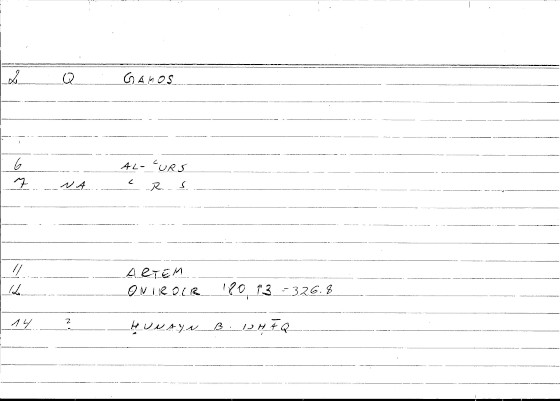 2 Q GAMOS
6 AL-ʿURS
7 NA ʿ R S
11 ARTEM
12 ONIROCR 180,13 = 326.8
14 ? ḤUNAYN B. ISḤĀQ